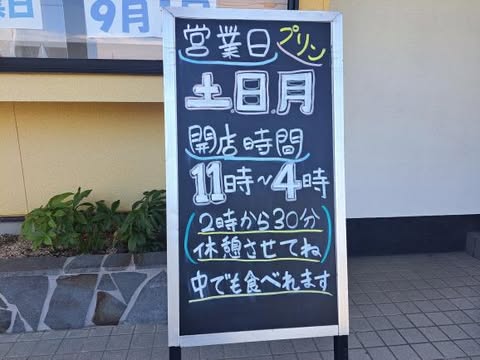 業日
9月
営業日 プリン
土.日.月
開店時間
11時~4時
(2時から30分
休憩させてね)
中でも食べれます